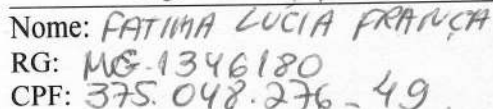 Nome: FATIMA LUCIA FRANÇA
RG: MG-1346180
CPF: 375.048.276-49